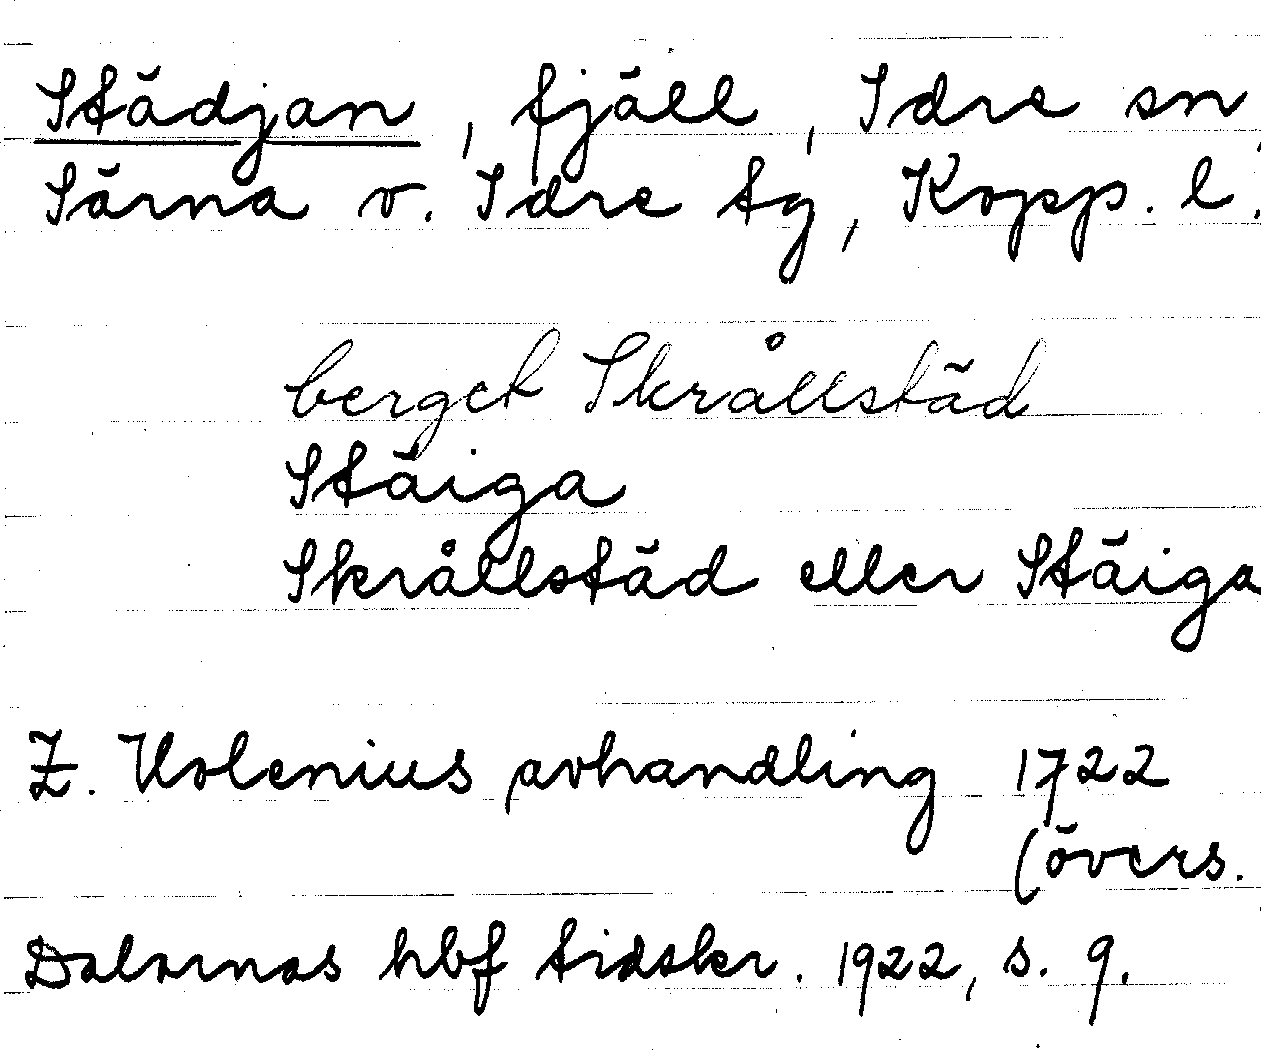 Städjan, fjäll, Idre sn,
Särna o. Idre tg, Kopp. l.
berget Skrållstäd
Stäiga
Skrållstäd eller Stäiga
Z. Holenius avhandling 1722
(övers.
Dalarnas hbf tidskr. 1922, s. 9.